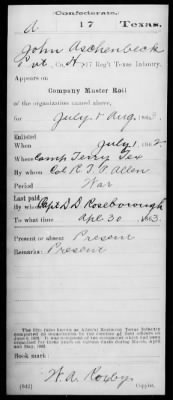 Confederate.
A 17 Texas.
John Aschenbeck
Pvt., Co. H, 17 Reg't Texas Infantry.
Appears on
Company Muster Roll
of the organization named above,
for July & Aug, 1863.
Enlisted
When July 1, 1862
Where Camp Terry Tex
By whom Col R. T. P. Allen
Period War
Last paid
By whom Capt D D Roseborough
To what time Apl 30 1863.
Present or absent Present
Remarks: Present
Book mark
W. A. Roxby
(642) Copyist.